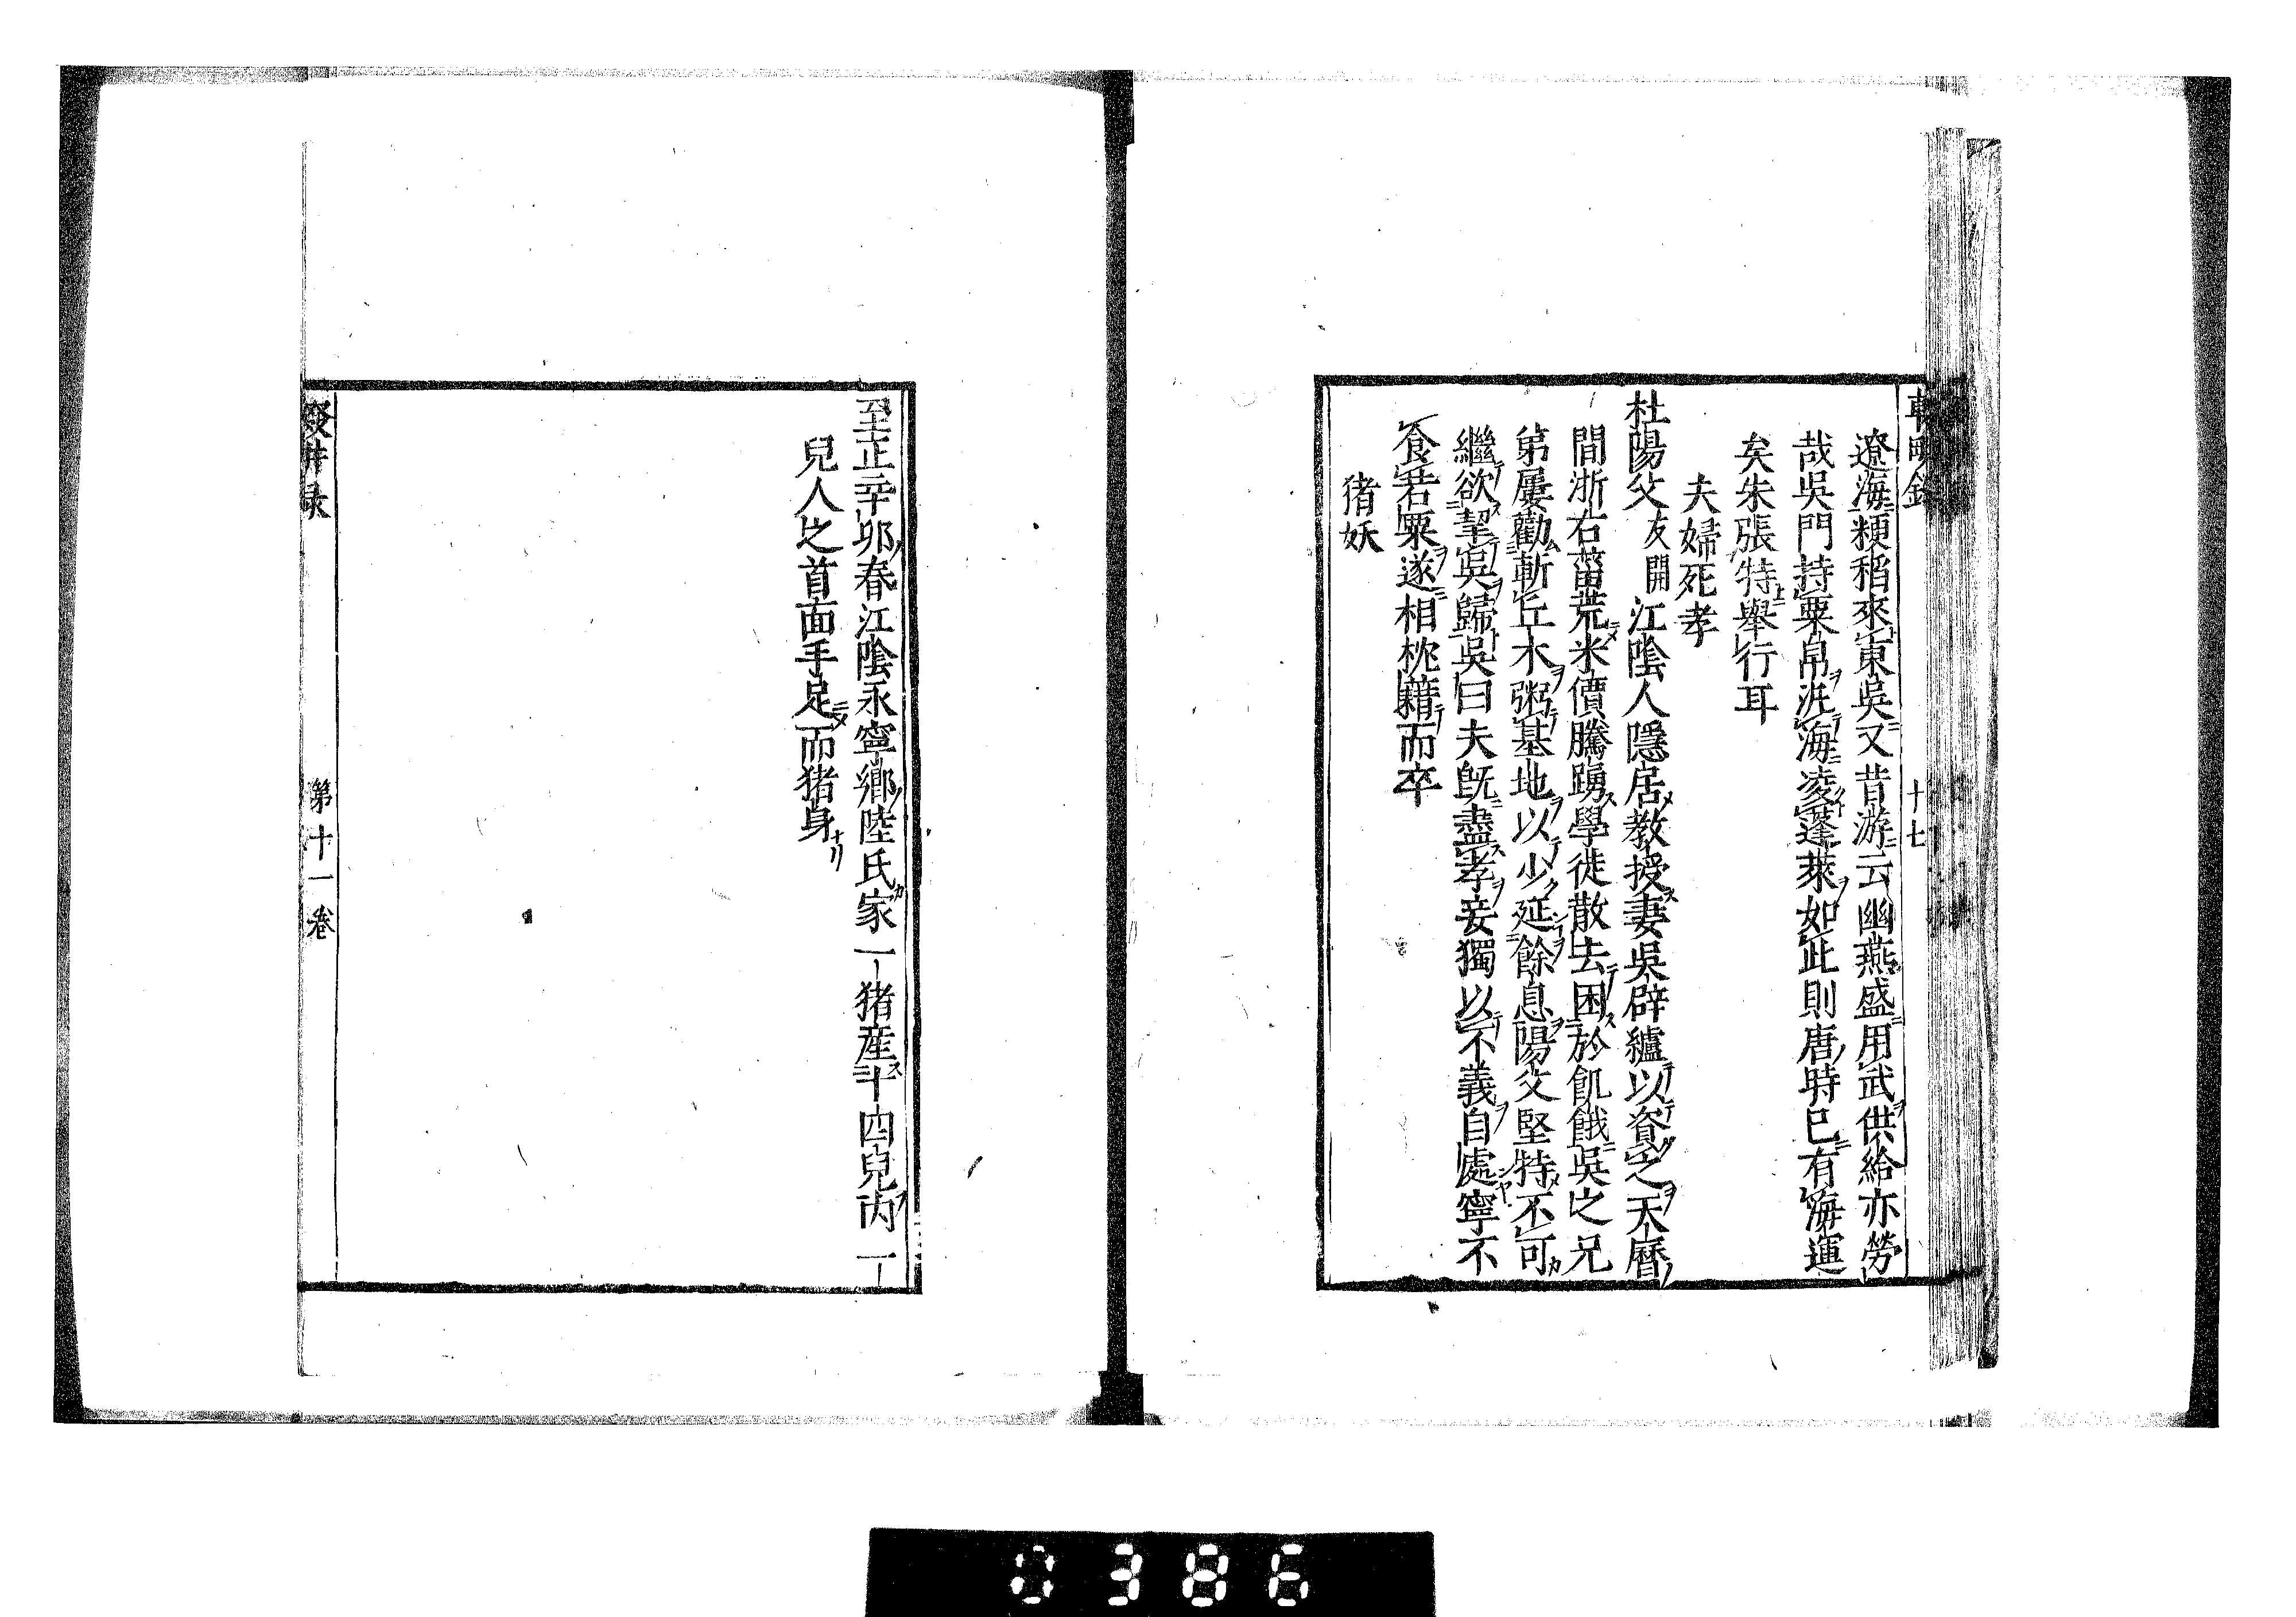 遼海粳稻來東吳又昔游云幽燕盛用武供給亦勞
哉吳門持粟帛汎海凌蓬萊如此則唐時已有海運
矣朱張特舉行耳
夫婦死孝
杜陽父友開江陰人隱居教授妻吳辟纑以資之天曆
間浙右菑荒米價騰踴學徒散去困於飢餓吳之兄
第屢勸斬丘木粥墓地以少延餘息陽父堅持不可
繼欲挈吳歸吳曰夫旣盡孝妾獨以不義自處寧不
食若粟遂相枕籍而卒
猪妖
十七
至正辛卯春江陰永寧鄉陸氏家一猪產十四兒內一
兒人之首面手足而猪身
第十一卷
0386